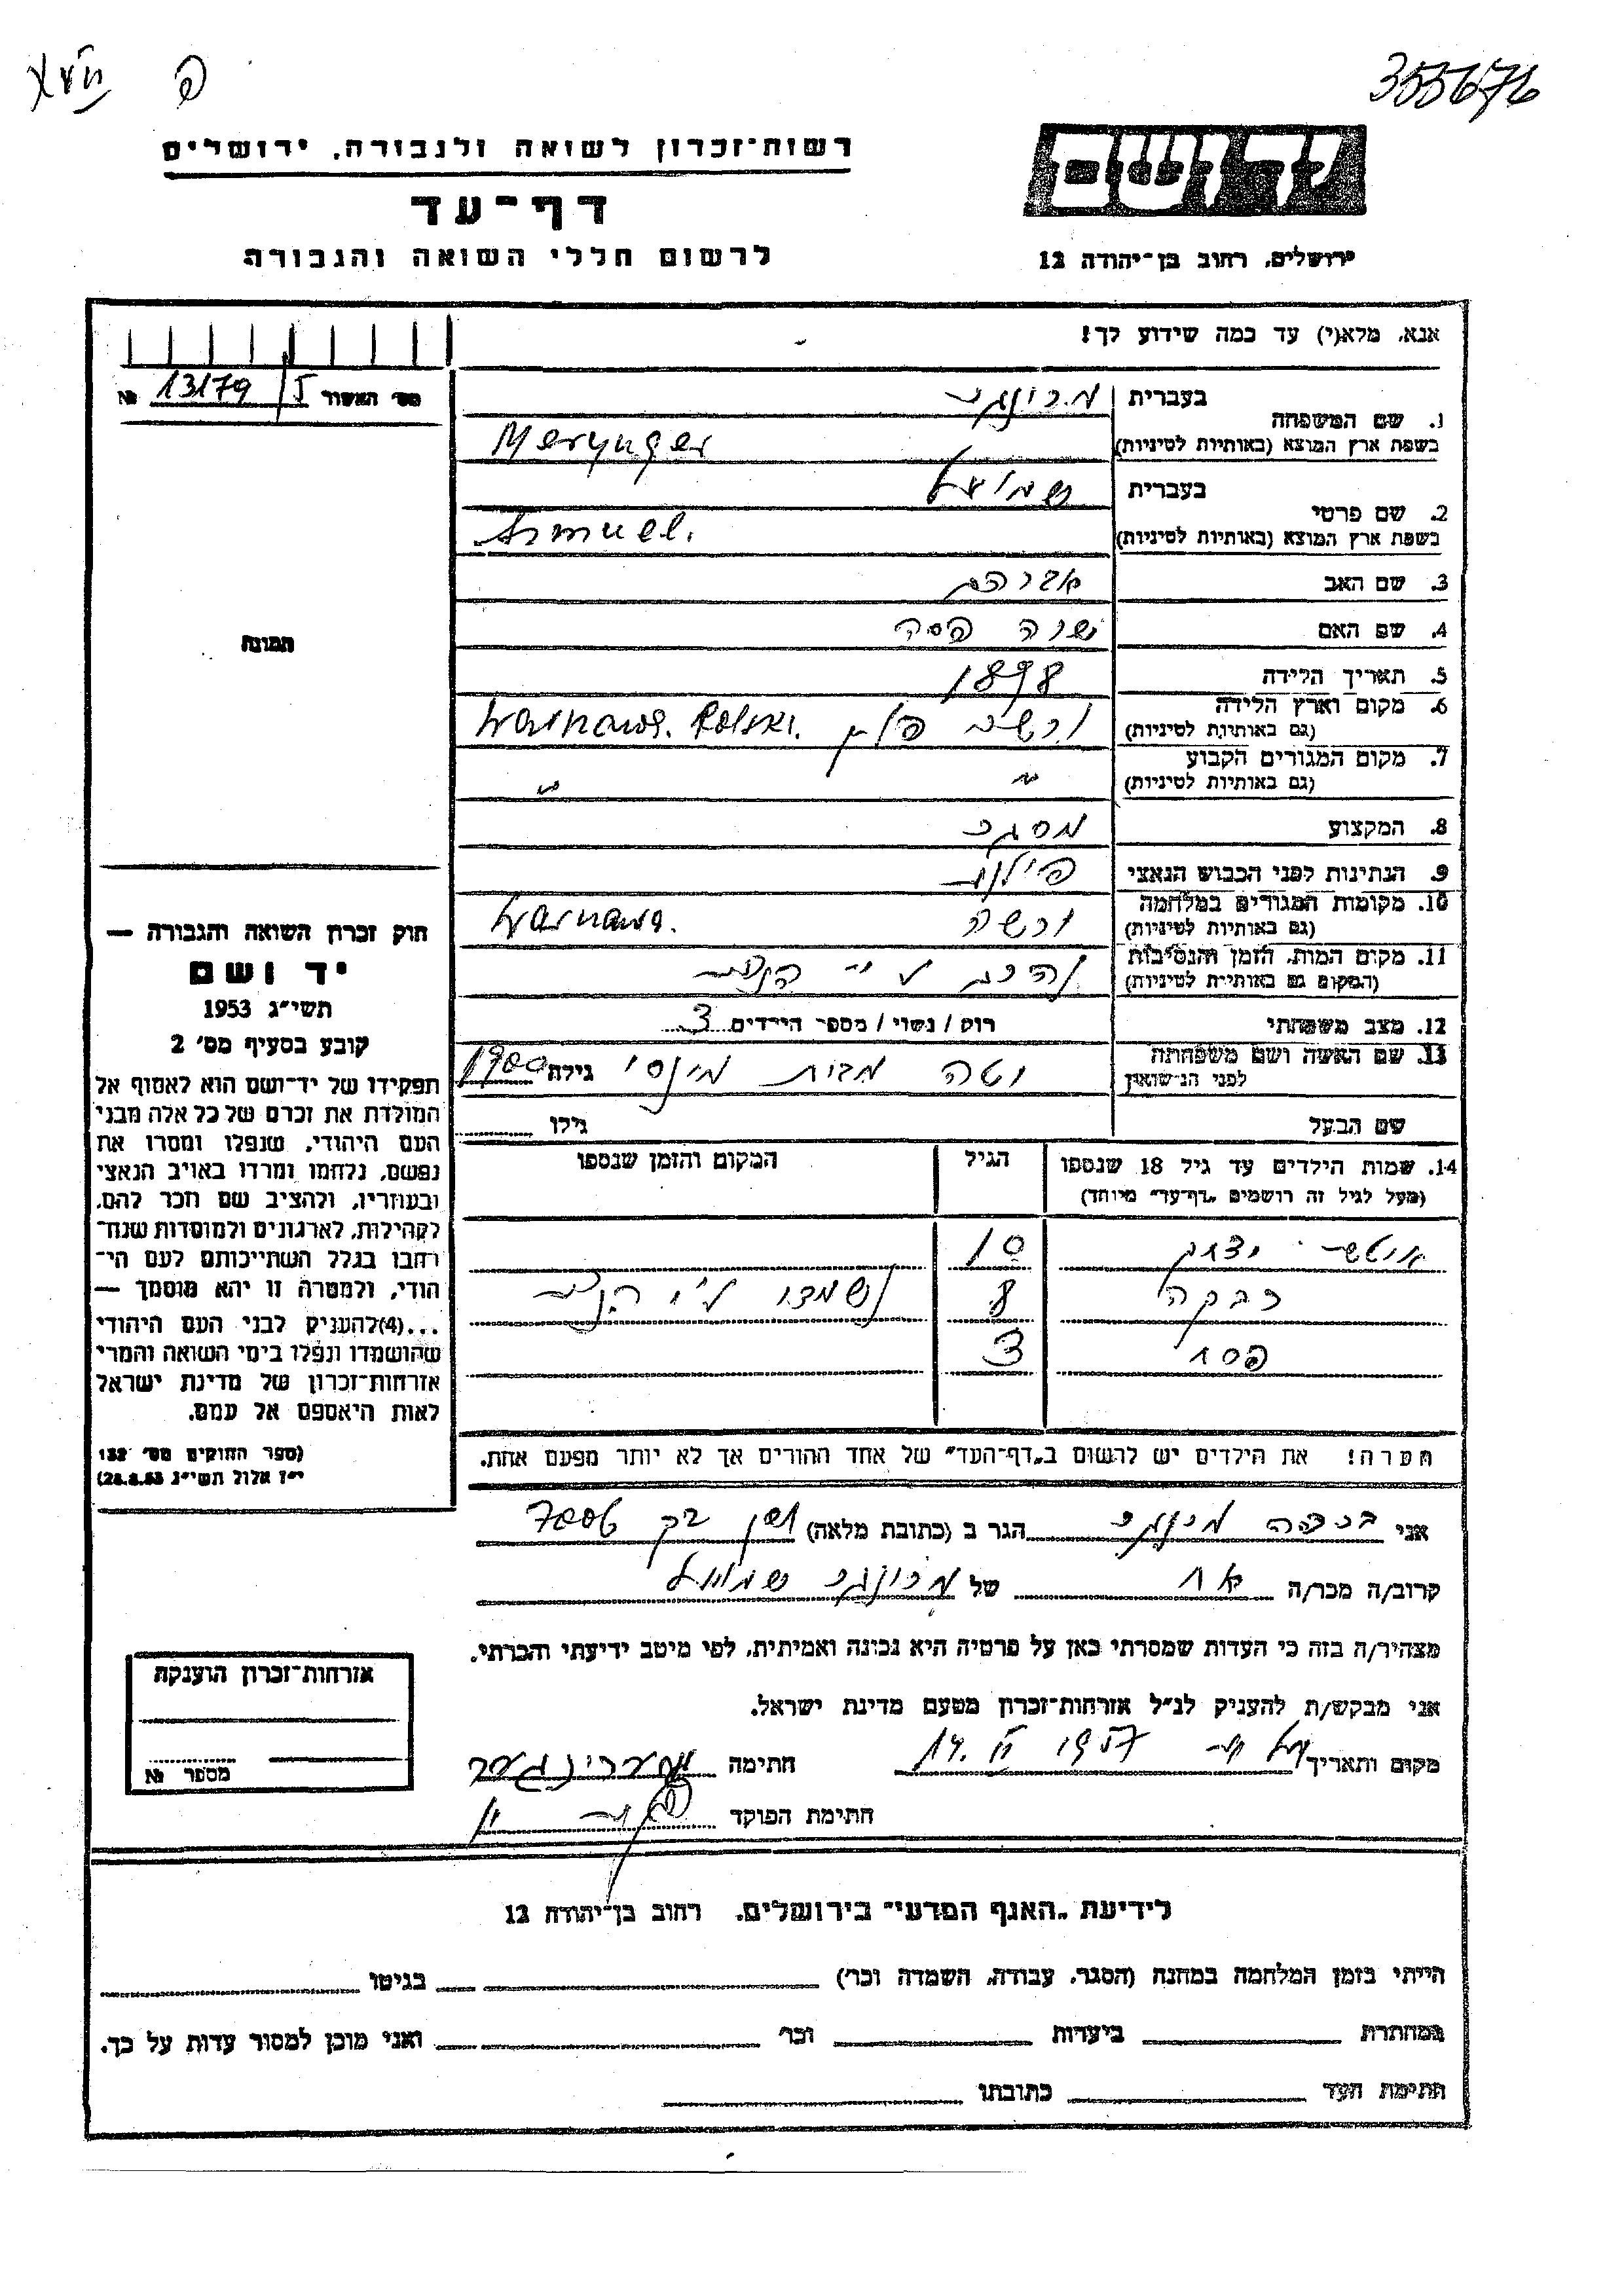 355676
רשות־זכרון לשואה ולגבורה, ירושלים
דף־עד
לרשום חללי השואה והגבורה
ירושלים, רחוב בן־יהודה 12
אנא, מלא(י) עד כמה שידוע לך!
מס׳ האשור № 13179/I
1. שם המשפחה
בעברית מרונגר
בשפת ארץ המוצא (באותיות לטיניות) Merynger
2. שם פרטי
בעברית שמואל
בשפת ארץ המוצא (באותיות לטיניות) Szmuel.
3. שם האב אברהם
4. שם האם
5. תאריך הלידה 1898
6. מקום וארץ הלידה
(גם באותיות לטיניות)
7. מקום המגורים הקבוע
(גם באותיות לטיניות) " "
8. המקצוע מסגר
9. הנתינות לפני הכבוש הנאצי
10. מקומות המגורים במלחמה
(גם באותיות לטיניות) ורשה
11. מקום המות, הזמן והנסיבות
(המקום גם באותיות לטיניות)
12. מצב משפחתי רוק / נשוי / מספר הילדים 3
13. שם האשה ושם משפחתה
לפני הנישואין
גילה 1900
שם הבעל
גילו
14. שמות הילדים עד גיל 18 שנספו
(מעל לגיל זה רושמים „דף־עד” מיוחד)
הגיל
המקום והזמן שנספו
יצחק 10
רבקה 8
פסח 3
הערה! את הילדים יש לרשום ב„דף־העד” של אחד ההורים אך לא יותר מפעם אחת.
אני
הגר ב (כתובת מלאה)
קרוב/ה מכר/ה אח של מרונגר שמואל
מצהיר/ה בזה כי העדות שמסרתי כאן על פרטיה היא נכונה ואמיתית, לפי מיטב ידיעתי והכרתי.
אני מבקש/ת להעניק לנ״ל אזרחות־זכרון מטעם מדינת ישראל.
מקום ותאריך
חתימה מערינגער
חתימת הפוקד
תמונה
חוק זכרון השואה והגבורה —
יד ושם
תשי״ג 1953
קובע בסעיף מס׳ 2
תפקידו של יד־ושם הוא לאסוף אל
המולדת את זכרם של כל אלה מבני
העם היהודי, שנפלו ומסרו את
נפשם, נלחמו ומרדו באויב הנאצי
ובעוזריו, ולהציב שם וזכר להם,
לקהילות, לארגונים ולמוסדות שנח־
רבו בגלל השתייכותם לעם הי־
הודי, ולמטרה זו יהא מוסמך —
...(4)להעניק לבני העם היהודי
שהושמדו ונפלו בימי השואה והמרי
אזרחות־זכרון של מדינת ישראל
לאות היאספם אל עמם.
(ספר החוקים מס׳ 132
י״ז אלול תשי״ג 28.8.53)
אזרחות־זכרון הוענקה
מספר №
לידיעת „האגף המדעי” בירושלים, רחוב בן־יהודה 12
הייתי בזמן המלחמה במחנה (הסגר, עבודה, השמדה וכר׳)
בגיטו
במחתרת
ביערות
וכר׳
ואני מוכן למסור עדות על כך.
חתימת העד
כתובתו